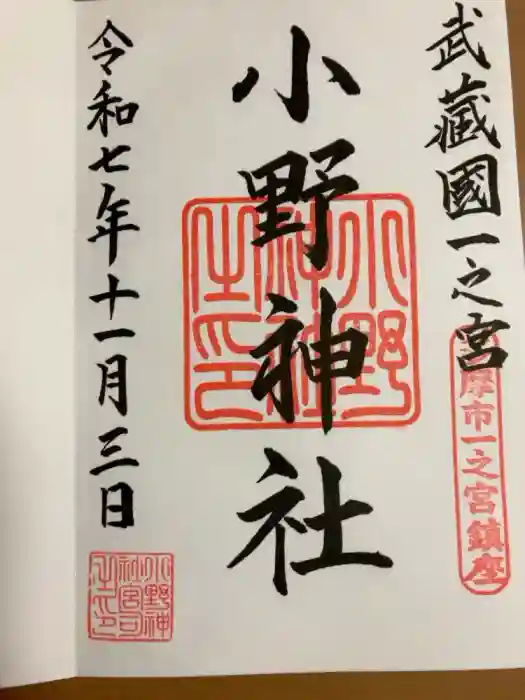 武藏國一之宮
摩市一之宮鎮座
小野神社
小野神社之印
令和七年十一月三日
小野神社宮司之印